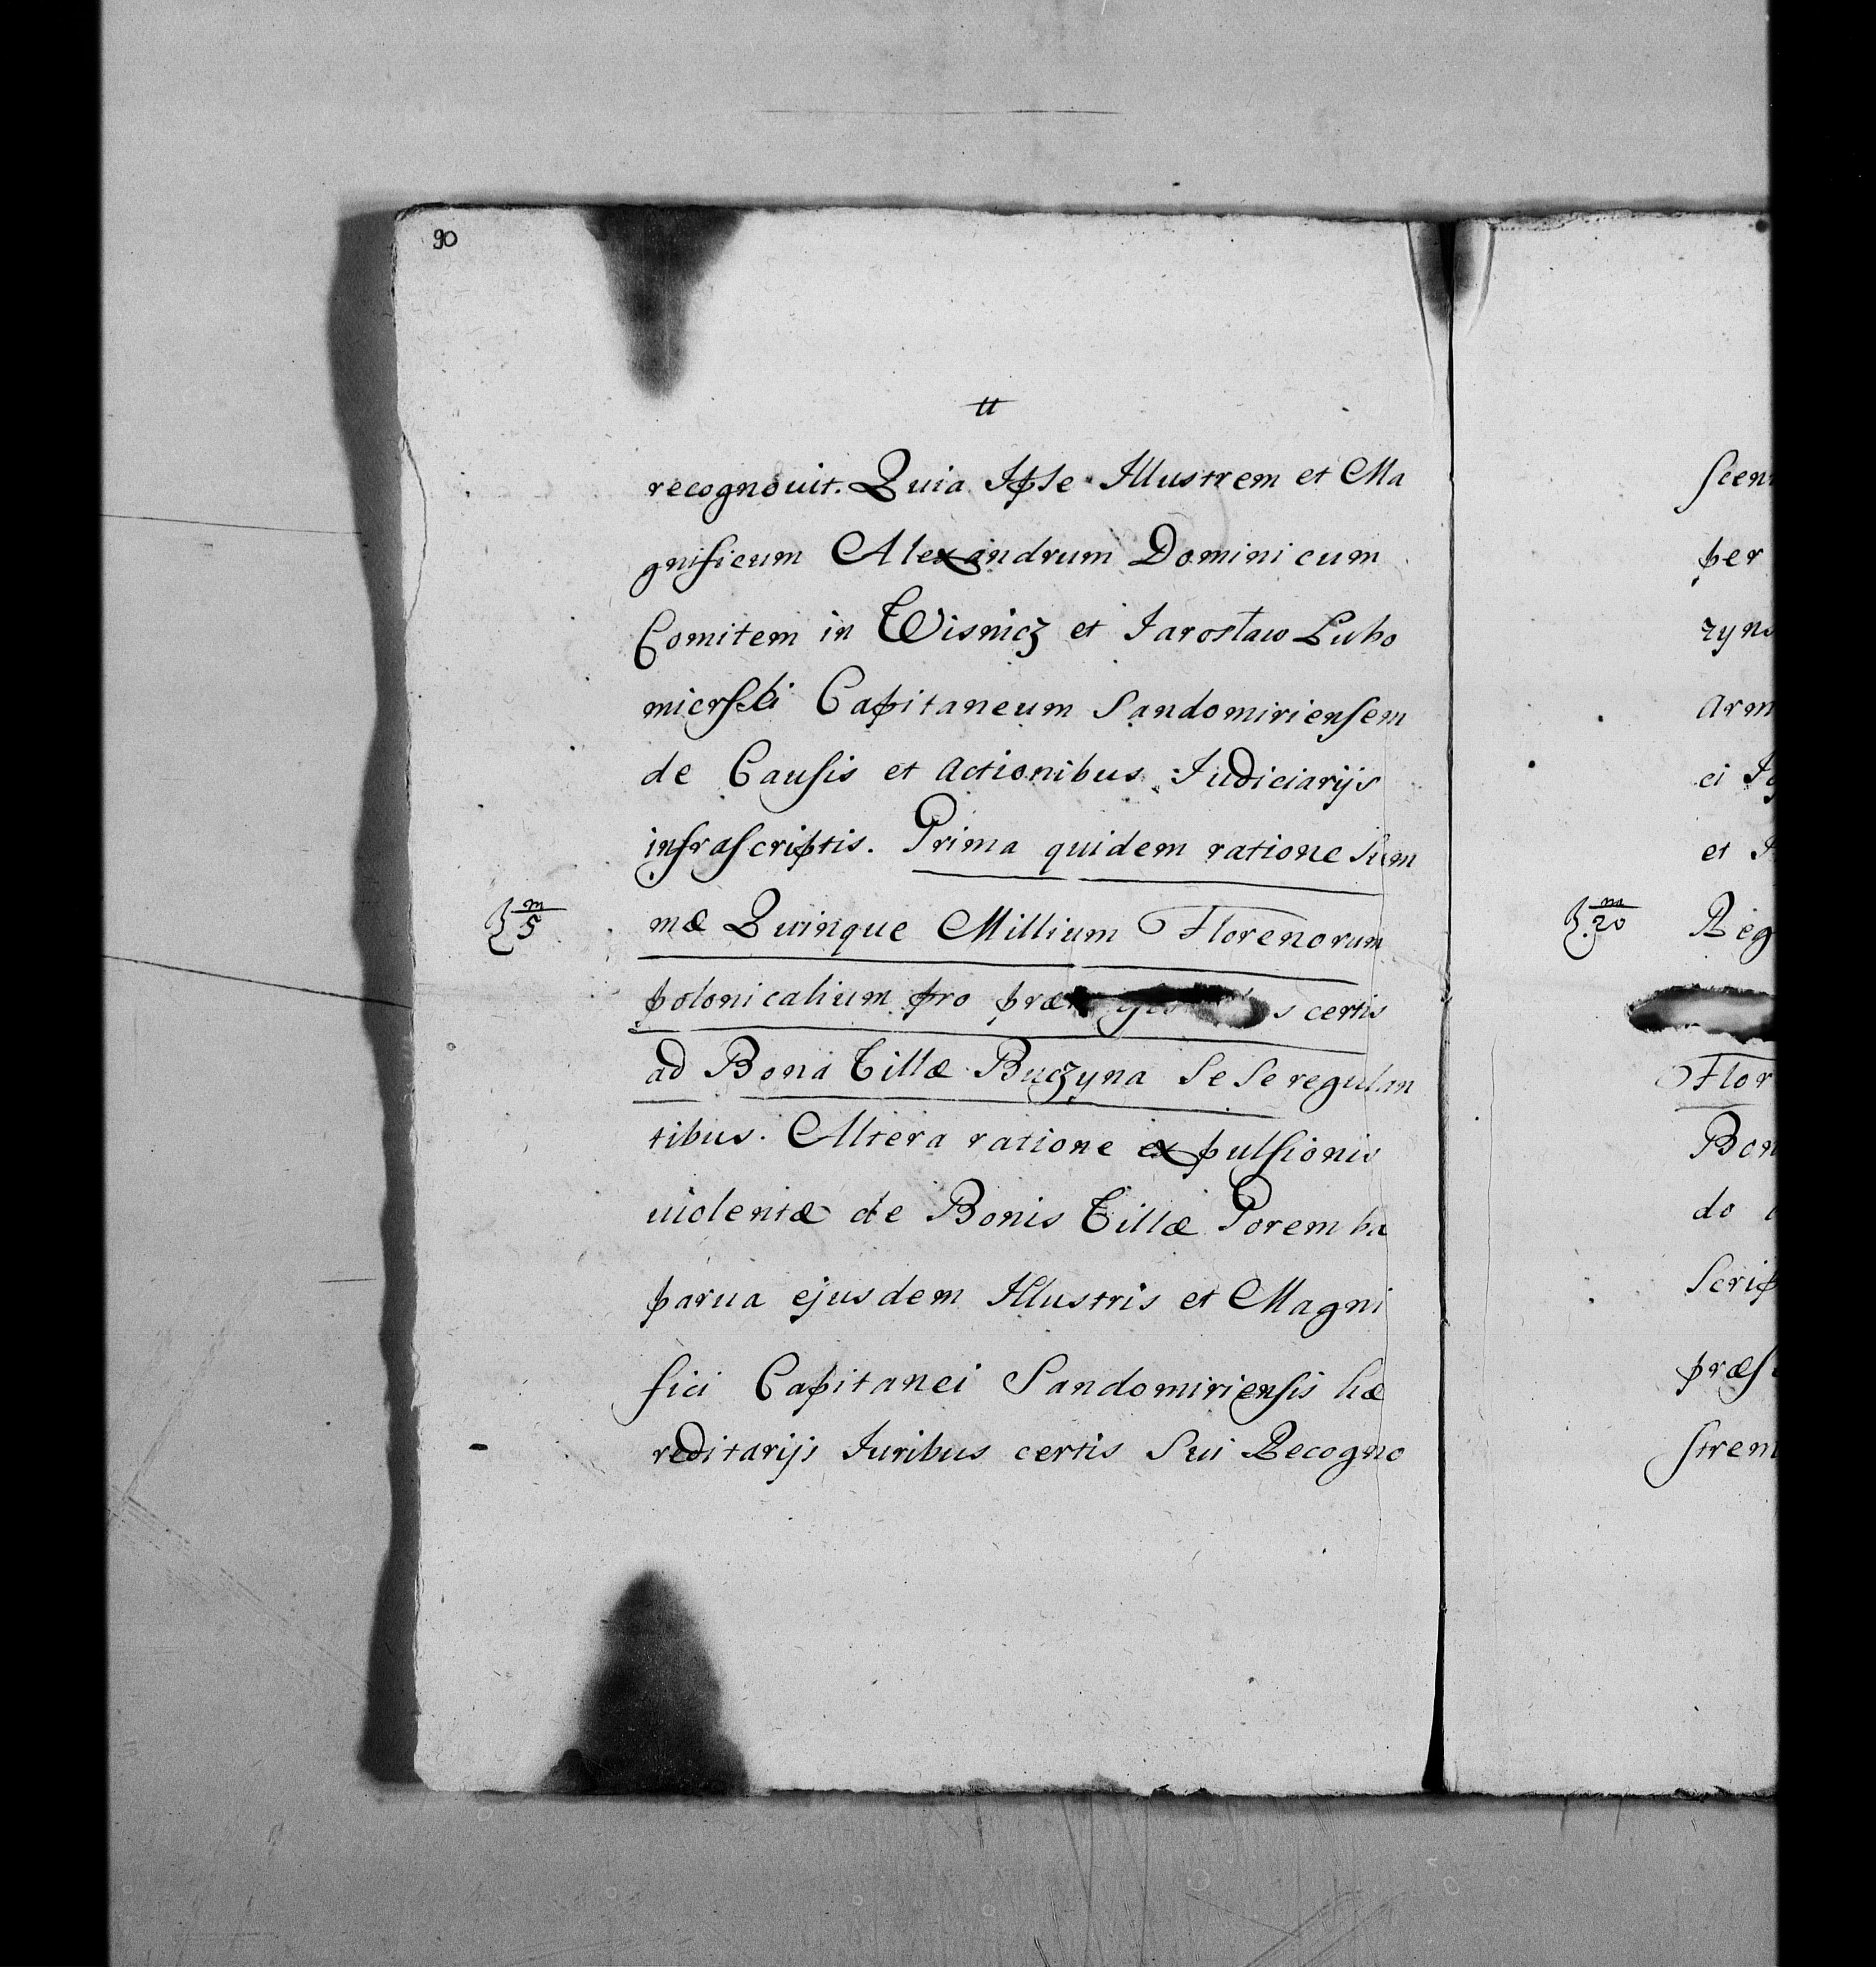 90
recognouit. Quia Ipse Illustrem et Ma
gnificum Alexandrum Dominicum
Comitem in Wisnicz et Jarosław Lubo
mierski Capitaneum Sandomiriensem
de Causis et Actionibus Judiciarijs
infrascriptis. Prima quidem ratione Sum
m
5
mæ Quinque Millium Florenorum
polonicalium pro certis
ad Bona Villæ Buczyna Se Se regulan
tibus. Altera ratione expulsionis
uiolentæ de Bonis Villæ Poremba
parua ejusdem Illustris et Magni
fici Capitanei Sandomiriensis hæ
reditarijs Juribus certis Sui Recogno
per
Arm
et
m
20
Reg
Flor
Bon
do
Scrip
præs
strem